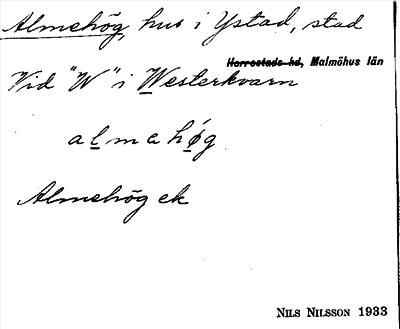 Almehög, hus i Ystad, stad
Herrestads hd, Malmöhus län
Vid "W" i Westerkvarn
almahǿg
Almehög ek
NILS NILSSON 1933